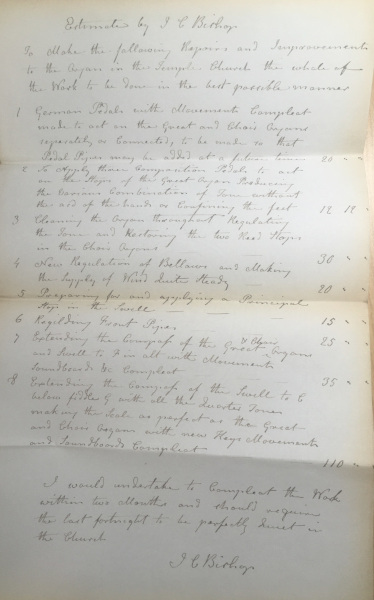 Estimates by J C Bishop
To Make the following Repairs and Improvements
to the Organ in the Temple Church the whole of
the Work to be done in the best possible manner
1 German Pedals with Movements Compleat
made to act on the Great and Chair Organs
seperately or Connected, to be made so that
Pedal Pipes may be added at a future time 20 " "
2 To Apply three Composition Pedals to act
on the Stops of the Great Organ Producing
the various Combinations of Tone without
the aid of the hands or Confining the feet 12 12 "
3 Cleaning the Organ throughout Regulating
the Tone and Restoring the two Reed Stops
in the Chair Organ 30 " "
4 New Regulation of Bellows and Making
the Supply of Wind quite Steady 20 " "
5 Preparing for and applying a Principal
Stop in the Swell 15 " "
6 Regilding Front Pipes 25 " "
7 Extending the Compass of the Great & Chair Organs
and Swell to F in alt with Movements
Soundboards &c Compleat 35 " "
8 Extending the Compass of the Swell to C
below fiddle G with all the Quarter Tones
making the Scale as perfect as the Great
and Chair Organs with new Keys Movements
and Soundboards Compleat 110 "
I would undertake to Compleat the Work
within two Months and should require
the last fortnight to be perfectly quiet in
the Church
J C Bishop